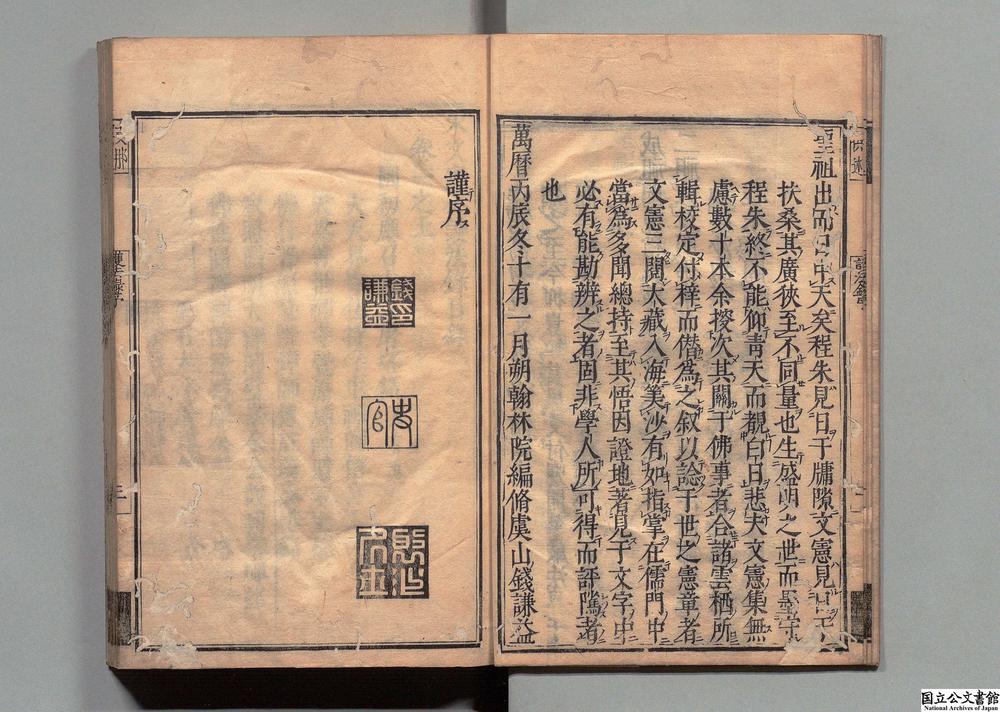 聖祖出而日中天矣程朱見日于牖隙文憲見日于
扶桑其廣狹至不同量也生盛明之世而墨守
程朱終不能仰靑天而覩白日悲夫文憲集無
慮數十本余撿次其關于佛事者合諸雲栖所
輯校定付梓而僣爲之叙以諗于世之憲章者
文憲三閱大藏入海筭沙有如指掌在儒門中
當爲多聞總持至其悟因證地著見于文字中
必有能勘辨之者固非學人所可得而評隲者
也
萬曆丙辰冬十有一月朔翰林院編脩虞山錢謙益
謹序
錢謙益印
史官
国立公文書館
National Archives of Japan